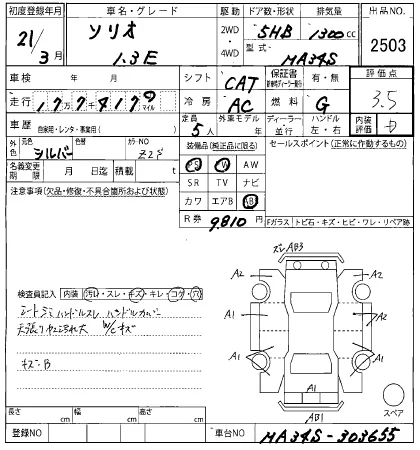 初度登録年月 車名・グレード 駆動 ドア数・形状 排気量 出品NO.
21/3月 ソリオ 1.3E 2WD・4WD 5HB 1300cc 2503
型式 MA34S
車検 年 月 シフト CAT 保証書 有・無 評価点
走行 マイル 冷房 AC 燃料 G 3.5
車歴 自家用・レンタ・事業用( ) 定員 5人 外車モデル 年 ディーラー・並行 ハンドル 左・右 内装評価
外色 元色 シルバー 色替 カラーNO Z2S 装備品(純正品に限る) セールスポイント(正常に作動するもの)
PS PW AW
名義変更期限 月 日迄 積載 t SR TV ナビ
注意事項(欠品・修復・不具合箇所および状態) カワ エアB AB
R券 9810円 Fガラス トビ石・キズ・ヒビ・ワレ・リペア跡
AB3
A2 A2
検査員記入 内装 汚れ・スレ・キズ・キレ・コゲ・穴
シートシミ ハンドルスレ ハンドルカバー A1 A2
天張り W/Cキズ A1 A1
キズ:B
A1
AB1
スペア
長さ cm 幅 cm 高さ cm
登録NO 車台NO MA34S-303655